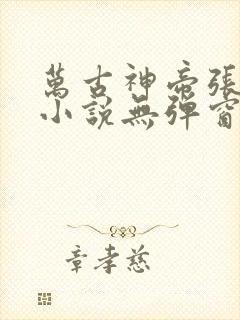 萬古神帝張
小説無彈窗
章孝慈